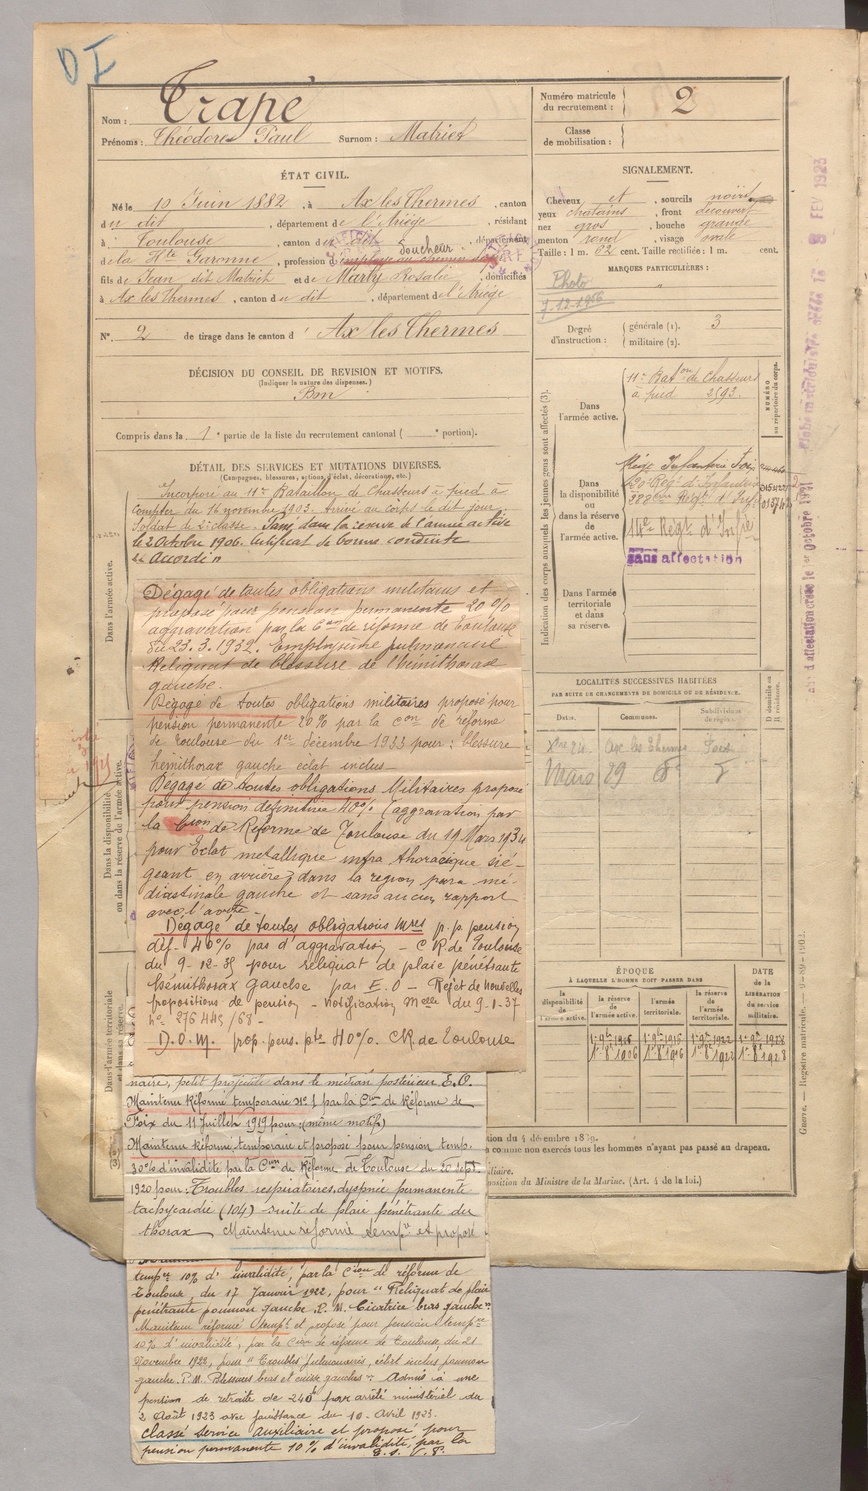 D I
Nom : Trapé
Prénoms : Théodore Paul Surnom : Matriet
ÉTAT CIVIL.
Né le 10 Juin 1882, à Ax les Thermes, canton
du dit, département de l'Ariège, résidant
à Toulouse, canton du dit, département
de la Hte Garonne, profession d doucheur
fils de Jean dit Matriet et de Marty Rosalie, domiciliés
à Ax les Thermes, canton du dit, département de l'Ariège
N° 2 de tirage dans le canton d' Ax les Thermes
DÉCISION DU CONSEIL DE REVISION ET MOTIFS.
(Indiquer la nature des dispenses.)
Bon
Compris dans la 1e partie de la liste du recrutement cantonal ( e portion).
DÉTAIL DES SERVICES ET MUTATIONS DIVERSES.
(Campagnes, blessures, actions d'éclat, décorations, etc.)
Incorporé au 11e Bataillon de Chasseurs à pied à
compter du 16 novembre 1903. Arrivé au corps le dit jour
Soldat de 2e classe. Passé dans la réserve de l'armée active
le 2 Octobre 1906. Certificat de bonne conduite
Accordé
Dans l'armée active.
Dégagé de toutes obligations militaires et
proposé pour pension permanente 20%
aggravation par la Con de réforme de Toulouse
du 23.3.1932. Emphysème pulmonaire
Reliquat de blessure de l'hémithorax
gauche.
Dégagé de toutes obligations militaires proposé pour
pension permanente 20% par la Con de réforme
de Toulouse du 1er décembre 1933 pour : blessure
hémithorax gauche éclat inclus
Dégagé de toutes obligations Militaires proposé
pour pension définitive 40% (aggravation par
la Con de Réforme de Toulouse du 19 Mars 1934
pour Eclat métallique intra thoracique sié-
geant en arrière dans la région para mé-
diastinale gauche et sans aucun rapport
avec l'aorte
Dégagé de toutes obligations Mres p.p. pension
déf. 40% pas d'aggravation - C.R. de Toulouse
du 9-12-35 pour reliquat de plaie pénétrante
hémithorax gauche par E.O - Rejet de nouvelles
propositions de pension - Notification Melle du 9-1-37
N° 276445/68-
D.O.M. prop. pens. pte 40%. CR de Toulouse
naire, petit projectile dans le médian postérieur E.O.
Maintenu Réformé temporaire N° 1 par la Con de Réforme de
Foix du 11 Juillet 1919 pour: (même motif)
Maintenu Réformé temporaire et proposé pour pension temp.
30% d'invalidité par la Con de Réforme de Toulouse du 20 sept.
1920 pour: Troubles respiratoires, dyspnée permanente
tachycardie (104) suite de plaie pénétrante du
thorax Maintenu réformé tempre et proposé
tempre 10% d'invalidité, par la Con de réforme de
Toulouse, du 17 Janvier 1922, pour "Reliquat de plaie
pénétrante poumon gauche. P.M. Cicatrice bras gauche"
Maintenu réformé tempre et proposé pour pension tempre
10% d'invalidité, par la Con de réforme de Toulouse, du 21
Novembre 1922, pour "Troubles pulmonaires, éclat inclus poumon
gauche. P.M. Blessures bras et cuisse gauches". Admis à une
pension de retraite de 240f par arrêté ministériel du
2 Août 1923 avec jouissance du 10 Avril 1923.
Classé Service Auxiliaire et proposé pour
pension permanente 10% d'invalidité, par la
Dans la disponibilité
ou dans la réserve de l'armée active.
Dans l'armée territoriale
et dans sa réserve.
Numéro matricule
du recrutement : 2
Classe
de mobilisation :
SIGNALEMENT.
Cheveux et, sourcils noirs
yeux chatains, front découvert
nez gros, bouche grande
menton rond, visage ovale
Taille : 1 m. 62 cent. Taille rectifiée : 1 m. cent.
MARQUES PARTICULIÈRES :
Photo
7.12.1906
Degré
d'instruction :
générale (1). 3
militaire (2).
Indication des corps auxquels les jeunes gens sont affectés (3).
NUMÉRO
au répertoire du corps.
Dans
l'armée active.
11e Baton de Chasseurs
à pied 2593.
Dans
la disponibilité
ou dans la réserve
de l'armée active.
Régt Infanterie Foix
14e Régt d'Infie
sans affectation
Dans l'armée
territoriale
et dans
sa réserve.
LOCALITÉS SUCCESSIVES HABITÉES
PAR SUITE DE CHANGEMENTS DE DOMICILE OU DE RÉSIDENCE.
Dates. Communes. Subdivisions
de région. D domicile ou
R résidence.
Ax les Thermes Foix
Mars 29
ÉPOQUE
À LAQUELLE L'HOMME DOIT PASSER DANS
DATE
de la
LIBÉRATION
du service
militaire.
la
disponibilité
de l'armée active.
la réserve
de l'armée
active.
l'armée
territoriale.
la réserve
de l'armée
territoriale.
ution du 4 décembre 1889.
comme non exercés tous les hommes n'ayant pas passé au drapeau.
iliaire.
position du Ministre de la Marine. (Art. 4 de la loi.)
Guerre. — Registre matricule. — 9-89-1902.